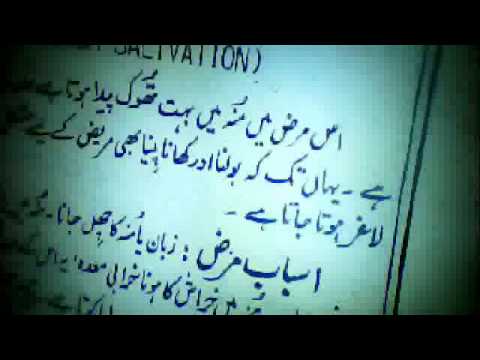 SALIVATION)
اس مرض میں منہ میں بہت تھوک پیدا ہوتا ہے
ہے ۔ یہاں تک کہ بولنا اور کھانا پینا بھی مریض کے لیے
لاغر ہوتا جاتا ہے ۔
اسباب مرض : زبان یا منہ کا چھل جانا ۔
میں خراش کا ہونا خرابی معدہ